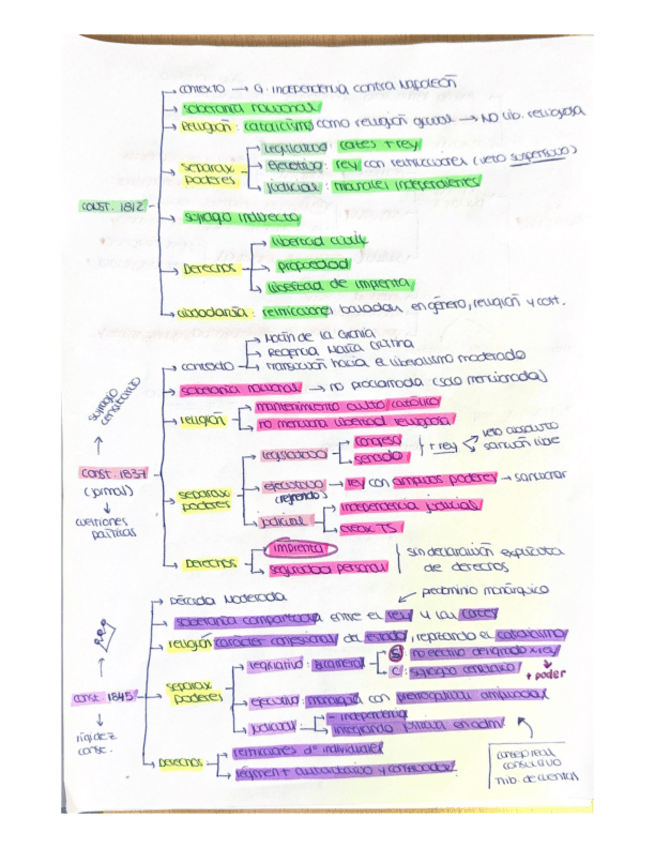 contexto → G. independencia contra Napoleón
soberanía nacional
CONST. 1812
Religión: catolicismo como religión → NO lib. religiosa
separax poderes
legislativo: cortes + rey
ejecutivo: rey con restricciones (veto suspensivo)
judicial: tribunales independientes
sufragio indirecto
Derechos
libertad civil
propiedad
libertad de imprenta
ciudadanía: restricciones basadas en género, religión y
contexto
Motín de la Granja
Regencia María Cristina
transición hacia el liberalismo moderado
sufragio censitario
CONST. 1837
(formal)
cuestiones políticas
soberanía nacional → no proclamada (solo mencionada)
religión
mantenimiento culto católico
no menciona libertad religiosa
separax poderes
legislativo
congreso
senado
+ rey
veto absoluto
sanción libre
ejecutivo: rey con amplios poderes → sancionar
(refrendo)
judicial
independencia judicial
creax TS
Derechos
imprenta
seguridad personal
sin declaración explícita de derechos
Década Moderada
predominio monárquico
soberanía compartida entre el rey y las cortes
religión carácter confesional del estado, reforzando el catolicismo
const. 1845
rigidez const.
separax poderes
legislativo: bicameral
S: no electivo designado x rey
C: sufragio censitario
+ poder
ejecutivo: monarquía con prerrogativas ampliadas
judicial
- independencia
integrando justicia en adm
Derechos
restricciones dº individuales
régimen + autoritario y conservador
consejo real
consultivo
trib. de cuentas